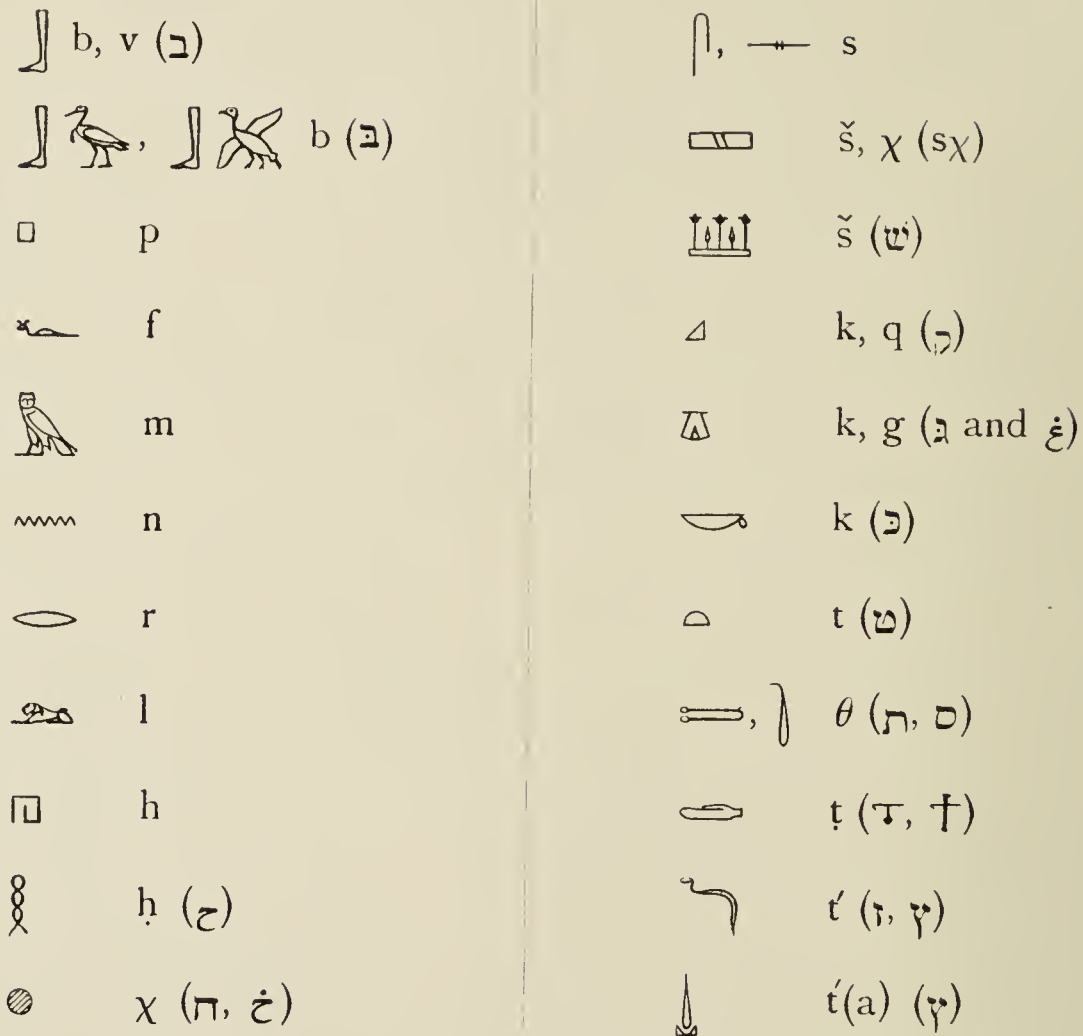 𓃀 b, v (ב)
𓃀𓅡, 𓃀𓅮 b (בּ)
𓊪 p
𓆑 f
𓅓 m
𓈖 n
𓂋 r
𓃭 l
𓉔 h
𓎛 ḥ (ح)
𓐍 χ (ח, خ)
𓋴, 𓊃 s
𓈚 š, χ (sχ)
𓆷 š (שׁ)
𓈎 k, q (ק)
𓎼 k, g (גּ and غ)
𓎡 k (כּ)
𓏏 t (ט)
𓍿, 𓍘 θ (ת, ס)
𓂧 ṭ (ⲧ, ϯ)
𓆓 t́ (ז, ץ)
𓍑 t́(a) (ץ)